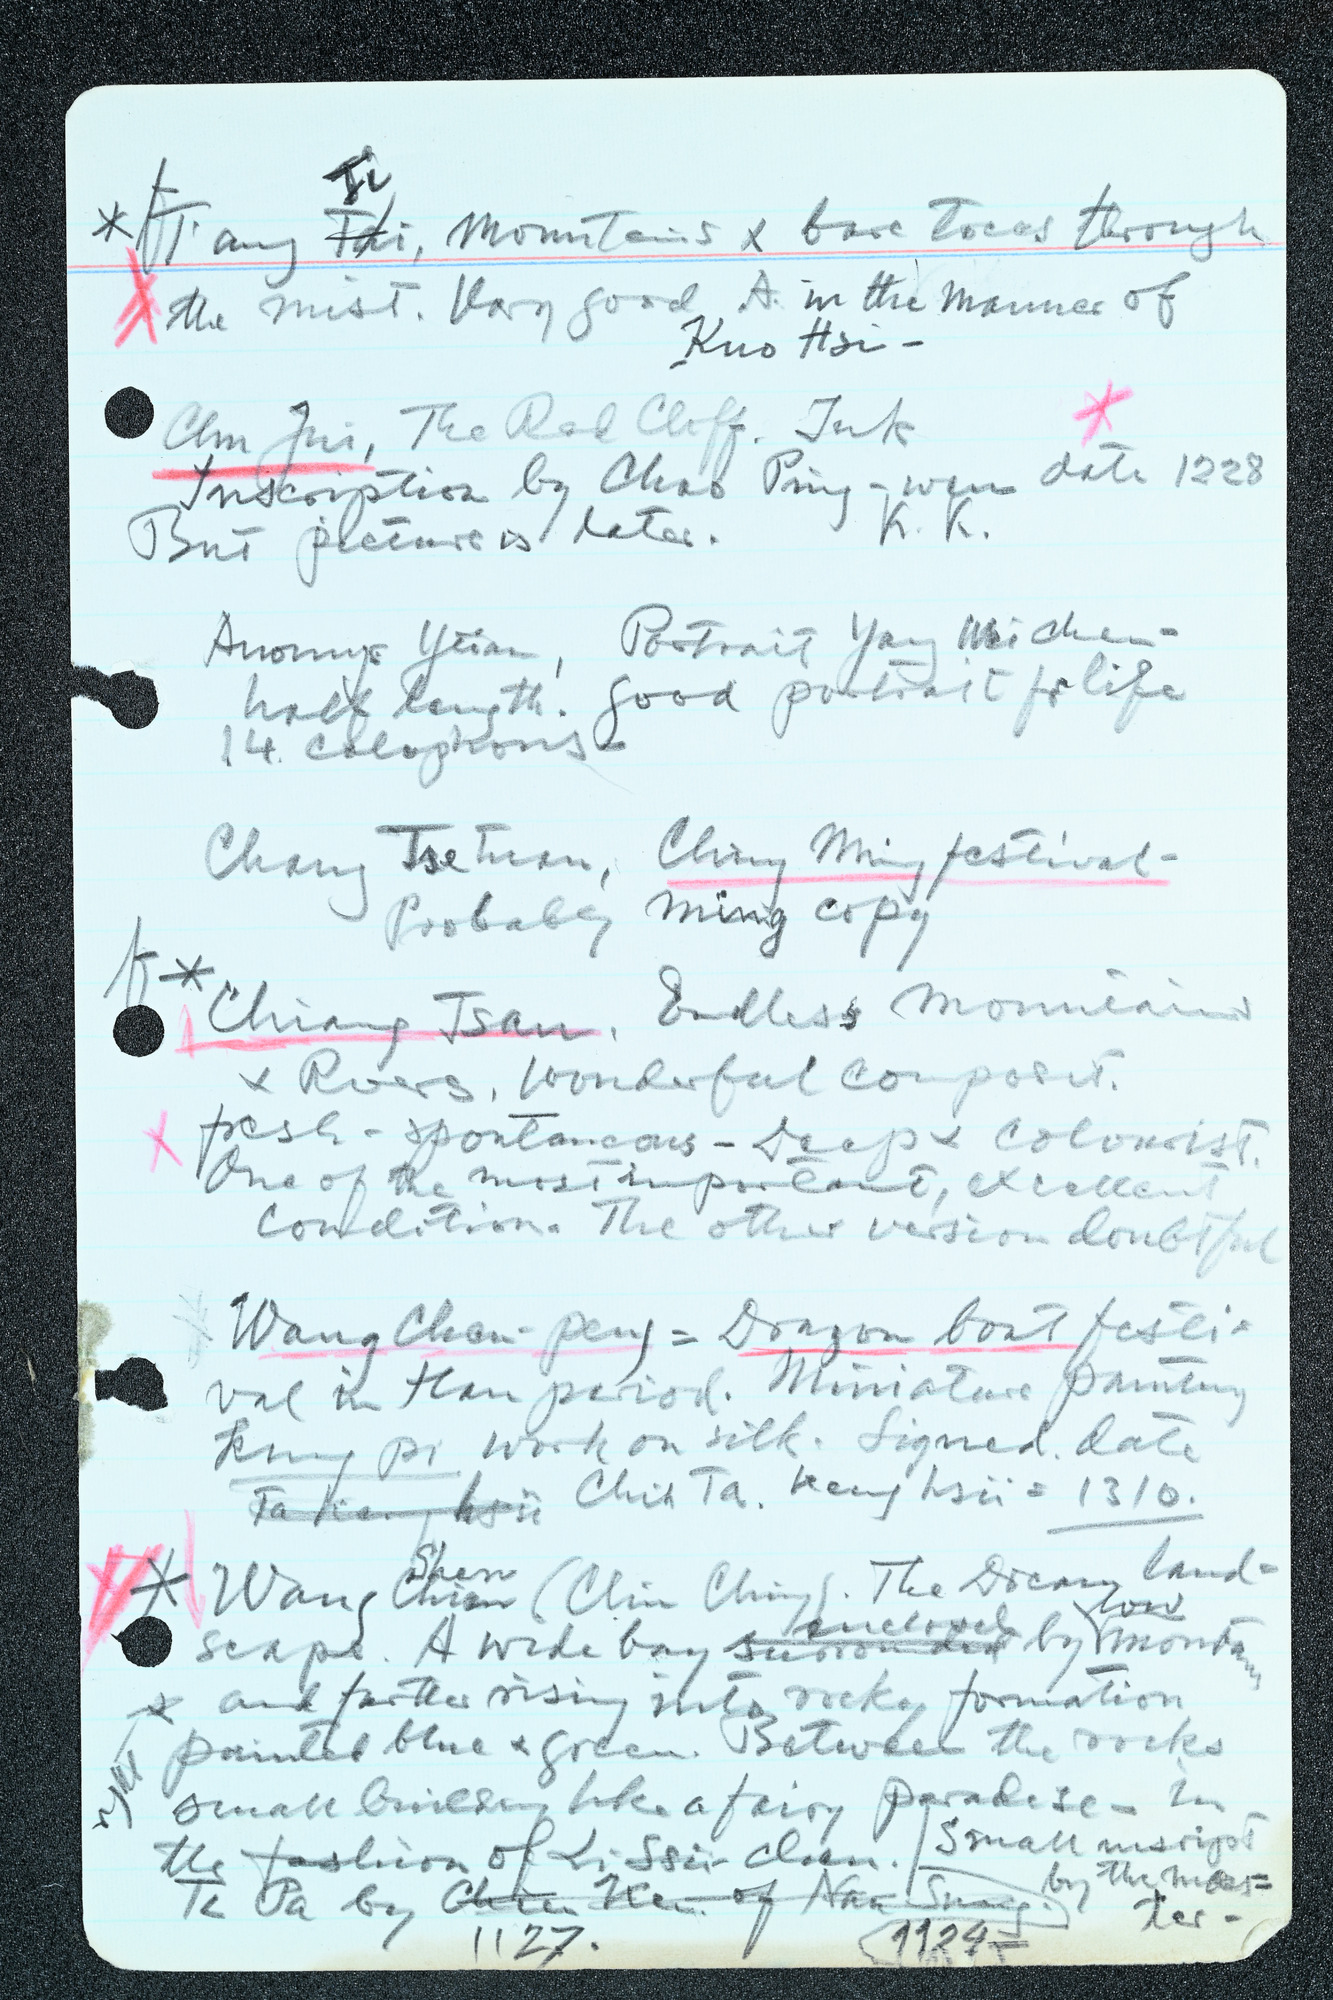 Ti
* T'ang Tai, Mountains & bare trees through
the mist. Very good A. in the manner of
Kuo Hsi -
Chu Jui, The Red Cliff. Ink
Inscription by Chao Ping-wen date 1228
But picture is later. K. K.
Anonym Yüan, Portrait Yang Mei chen-
half length. good portrait fr life
14 colophons -
Chang Tse tuan, Ching Ming festival -
Probably Ming copy
* Chiang Tsan. Endless Mountains
& Rivers. Wonderful composit.
fresh - spontaneous - Deep & colourist.
One of the most important, excellent
condition. The other version doubtful
Wang Chen-peng = Dragon boat festi-
val in Han period. Miniature painting
Kung pi work on silk. Signed. date
Chih Ta. keng hsü = 1310.
* Wang Shen (Chin Ching). The Dream land-
scape. A wide bay enclosed by low mountains
and further rising into rocky formation
painted blue & green. Between the rocks
small building like a fairy paradise - in
the fashion of Li Ssü-chun. Small inscript
by the mas-
Ti Pa by of Nan Sung. ter -
1127. 1124